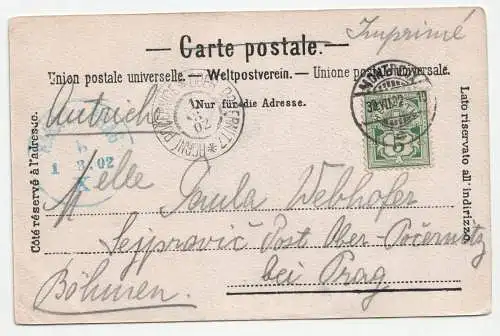 Imprimé
— Carte postale. —
Union postale universelle. — Weltpostverein. — Unione postale universale.
MONTREUX
Nur für die Adresse.
Autriche
5
1 3 02
X
Côté réservé à l'adresse.
Lato riservato all'indirizzo.
Melle Paula Webhofer
Sejpravič Post Ober-Počernitz
bei Prag
Böhmen.